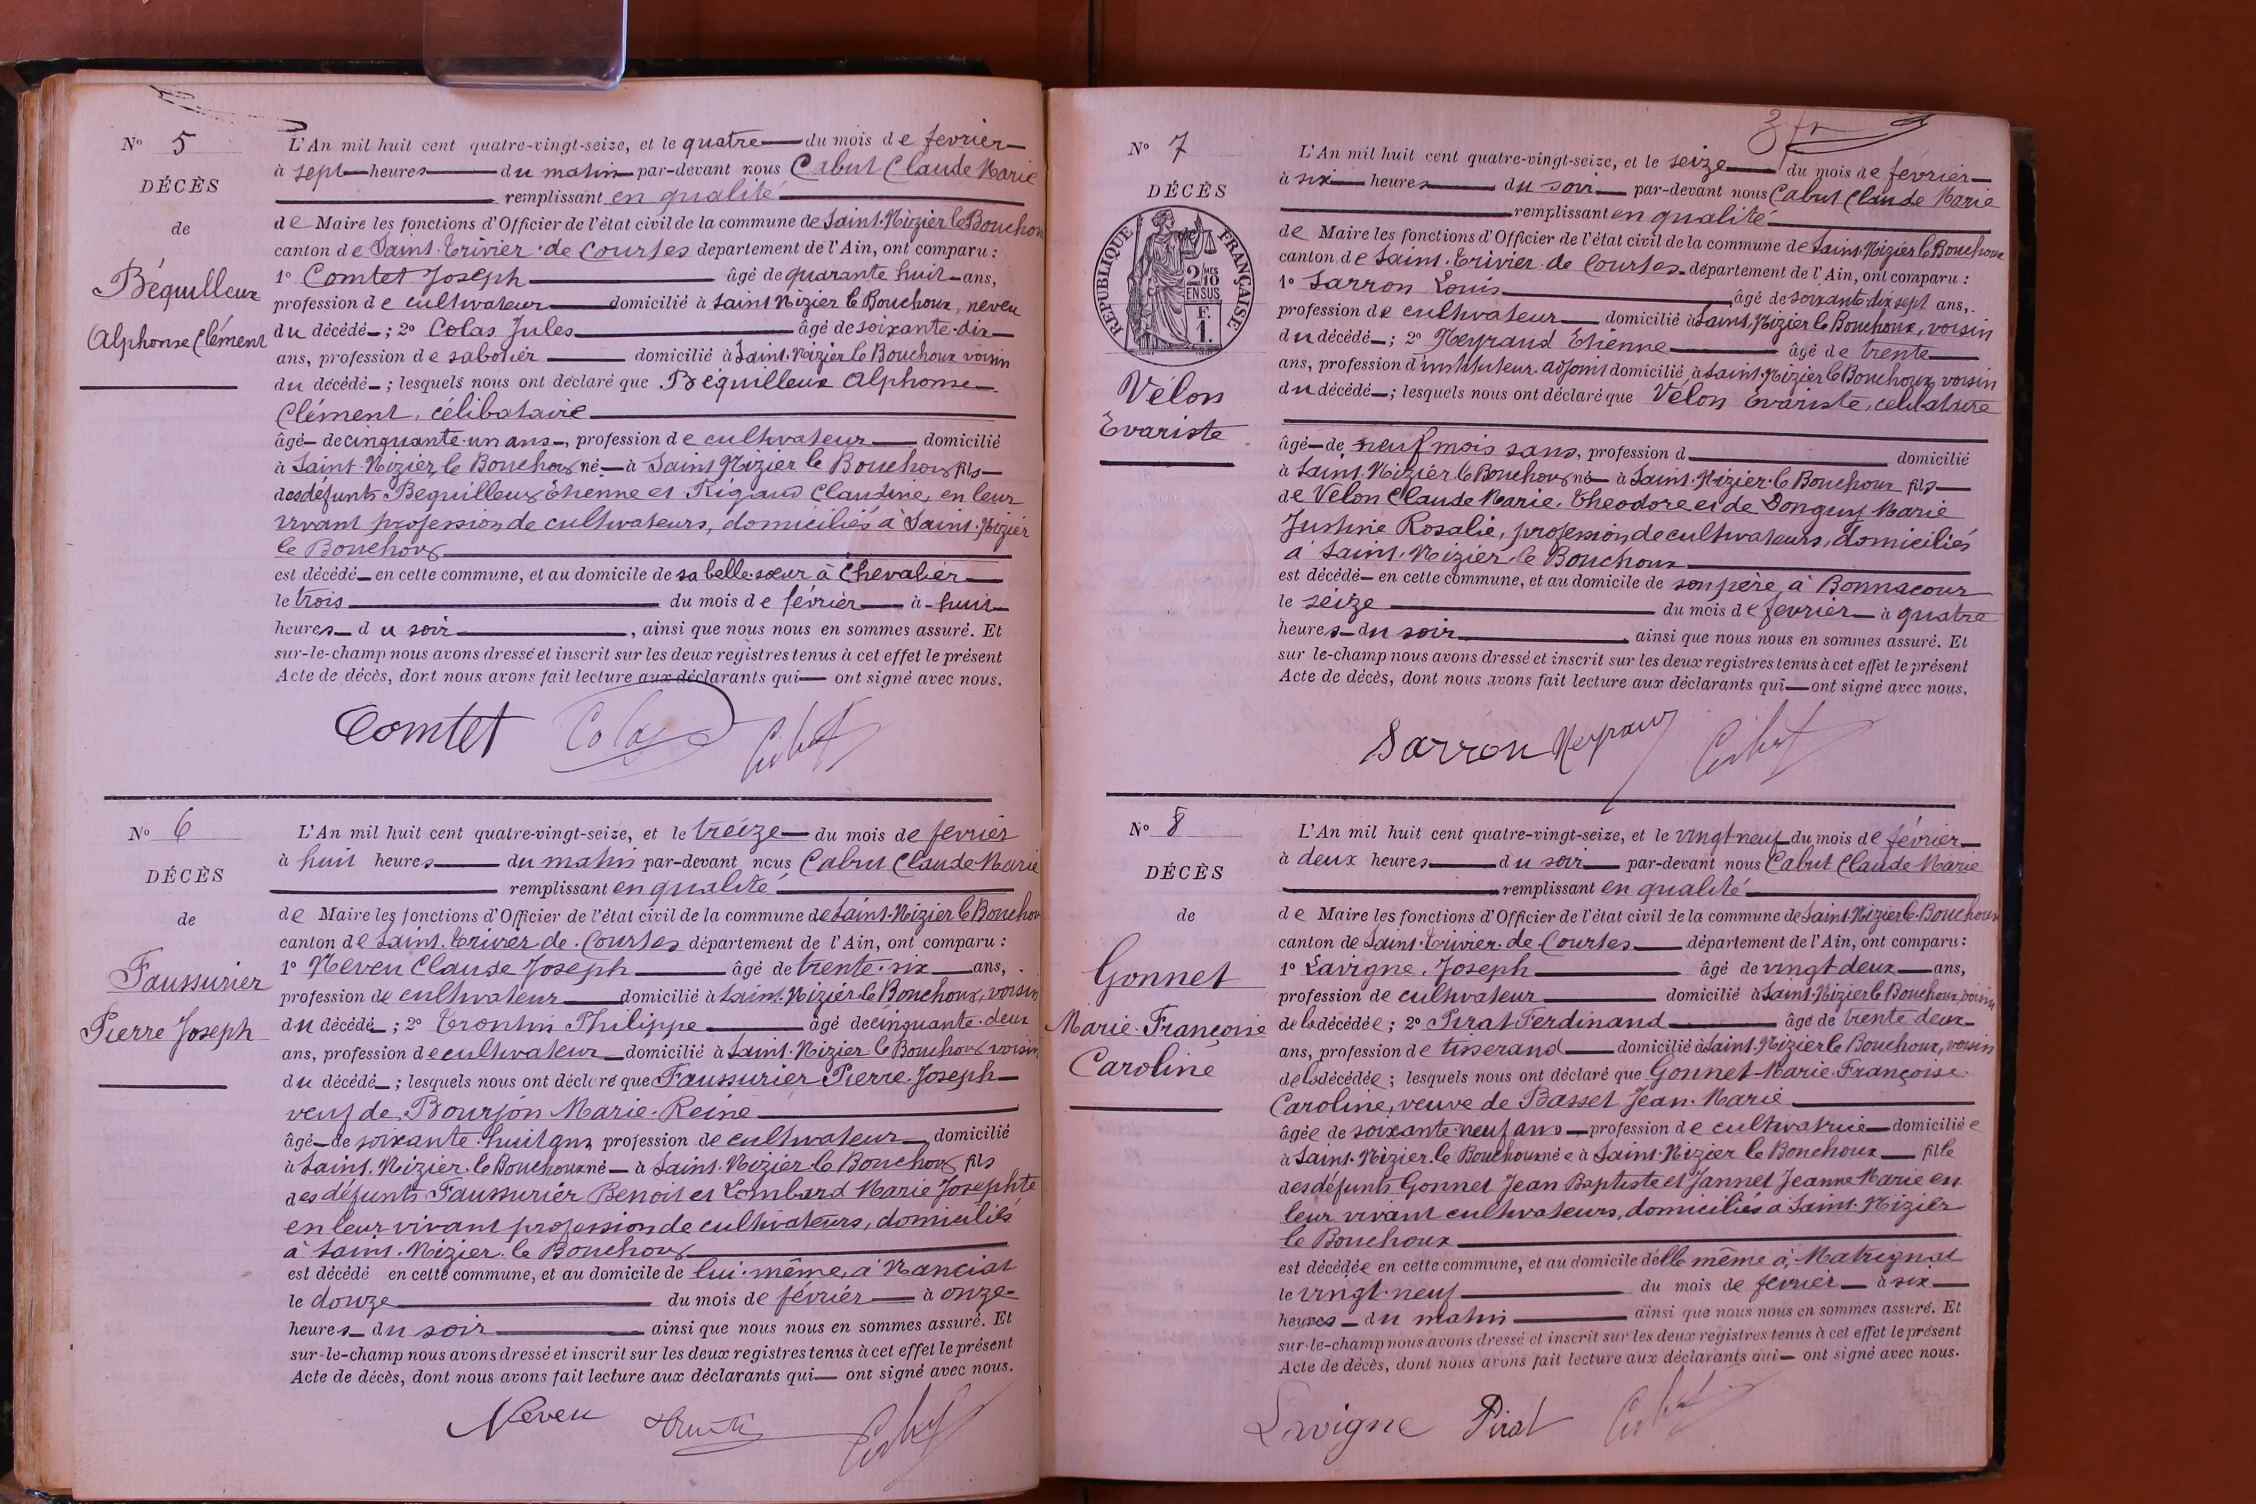 N° 5
DÉCÈS
de
Béquilleux
Alphonse Clément
L'An mil huit cent quatre-vingt-seize, et le quatre du mois de fevrier
à sept heures du matin par-devant nous Cabut Claude Marie
remplissant en qualité
de Maire les fonctions d'Officier de l'état civil de la commune de Saint-Nizier le Bouchoux
canton de Saint-Trivier-de Courtes departement de l'Ain, ont comparu :
1° Comtet Joseph âgé de quarante huit ans,
profession de cultivateur domicilié à Saint Nizier le Bouchoux, neveu
du décédé ; 2° Colas Jules âgé de soixante-dix
ans, profession de sabotier domicilié à Saint-Nizier le Bouchoux voisin
du décédé ; lesquels nous ont déclaré que Béquilleux Alphonse
Clément, célibataire
âgé de cinquante-un ans, profession de cultivateur domicilié
à Saint-Nizier le Bouchoux né à Saint Nizier le Bouchoux fils
des défunts Bequilleux Etienne et Rigaud Claudine, en leur
vivant profession de cultivateurs, domiciliés à Saint-Nizier
le Bouchoux
est décédé en cette commune, et au domicile de sa belle-sœur à Chevalier
le trois du mois de février à huit
heures du soir, ainsi que nous nous en sommes assuré. Et
sur-le-champ nous avons dressé et inscrit sur les deux registres tenus à cet effet le présent
Acte de décès, dont nous avons fait lecture aux déclarants qui ont signé avec nous.
Comtet Colas Cabut
N° 6
DÉCÈS
de
Faussurier
Pierre Joseph
L'An mil huit cent quatre-vingt-seize, et le treize du mois de fevrier
à huit heures du matin par-devant nous Cabut Claude Marie
remplissant en qualité
de Maire les fonctions d'Officier de l'état civil de la commune de Saint-Nizier le Bouchoux
canton de Saint-Trivier-de-Courtes département de l'Ain, ont comparu :
1° Neveu Claude Joseph âgé de trente-six ans,
profession de cultivateur domicilié à Saint-Nizier le Bouchoux, voisin
du décédé ; 2° Trontin Philippe âgé de cinquante-deux
ans, profession de cultivateur domicilié à Saint-Nizier le Bouchoux voisin
du décédé ; lesquels nous ont déclaré que Faussurier Pierre-Joseph
veuf de Bourjon Marie-Reine
âgé de soixante-huit ans, profession de cultivateur, domicilié
à Saint-Nizier-le Bouchoux né à Saint-Nizier-le Bouchoux fils
des défunts Faussurier Benoit et Lombard Marie Josephte
en leur vivant profession de cultivateurs, domiciliés
à Saint-Nizier-le Bouchoux
est décédé en cette commune, et au domicile de lui-même, à Nanciat
le douze du mois de février à onze
heures du soir ainsi que nous nous en sommes assuré. Et
sur-le-champ nous avons dressé et inscrit sur les deux registres tenus à cet effet le présent
Acte de décès, dont nous avons fait lecture aux déclarants qui ont signé avec nous.
Neveu Cabut
N° 7
DÉCÈS
RÉPUBLIQUE FRANÇAISE
2/10 EN SUS
F. 1.
Vélon
Evariste
L'An mil huit cent quatre-vingt-seize, et le seize du mois de février
à six heures du soir par-devant nous Cabut Claude Marie
remplissant en qualité
de Maire les fonctions d'Officier de l'état civil de la commune de Saint-Nizier le Bouchoux
canton de Saint-Trivier-de Courtes département de l'Ain, ont comparu :
1° Sarron Louis âgé de soixante-dix sept ans,
profession de cultivateur domicilié à Saint-Nizier le Bouchoux, voisin
du décédé ; 2° Meyraud Etienne âgé de trente
ans, profession d'instituteur-adjoint domicilié à Saint-Nizier le Bouchoux voisin
du décédé ; lesquels nous ont déclaré que Velon Evariste, célibataire
âgé de neuf mois sans, profession d domicilié
à Saint-Nizier le Bouchoux né à Saint-Nizier-le Bouchoux fils
de Velon Claude Marie-Theodore et de Donguy Marie
Justine Rosalie, profession de cultivateurs, domiciliés
à Saint-Nizier-le Bouchoux
est décédé en cette commune, et au domicile de son père à Bonnacour
le seize du mois de fevrier à quatre
heures du soir ainsi que nous nous en sommes assuré. Et
sur le-champ nous avons dressé et inscrit sur les deux registres tenus à cet effet le présent
Acte de décès, dont nous avons fait lecture aux déclarants qui ont signé avec nous.
Sarron Meyraud Cabut
N° 8
DÉCÈS
de
Gonnet
Marie-Françoise
Caroline
L'An mil huit cent quatre-vingt-seize, et le vingt neuf du mois de février
à deux heures du soir par-devant nous Cabut Claude Marie
remplissant en qualité
de Maire les fonctions d'Officier de l'état civil de la commune de Saint-Nizier le-Bouchoux
canton de Saint-Trivier-de Courtes département de l'Ain, ont comparu :
1° Lavigne Joseph âgé de vingt deux ans,
profession de cultivateur domicilié à Saint-Nizier le Bouchoux, voisin
de la décédée ; 2° Pirat Ferdinand âgé de trente deux
ans, profession de tisserand domicilié à Saint-Nizier le Bouchoux, voisin
de la décédée ; lesquels nous ont déclaré que Gonnet Marie-Françoise
Caroline, veuve de Basset Jean-Marie
âgée de soixante-neuf ans profession de cultivatrice domiciliée
à Saint-Nizier-le Bouchoux née à Saint-Nizier le Bouchoux fille
des défunts Gonnet Jean Baptiste et Jannet Jeanne Marie en
leur vivant cultivateurs, domiciliés à Saint-Nizier
le Bouchoux
est décédée en cette commune, et au domicile d'elle même à Matrignat
le vingt-neuf du mois de fevrier à six
heures du matin ainsi que nous nous en sommes assuré. Et
sur-le-champ nous avons dressé et inscrit sur les deux registres tenus à cet effet le présent
Acte de décès, dont nous avons fait lecture aux déclarants qui ont signé avec nous.
Lavigne Pirat Cabut